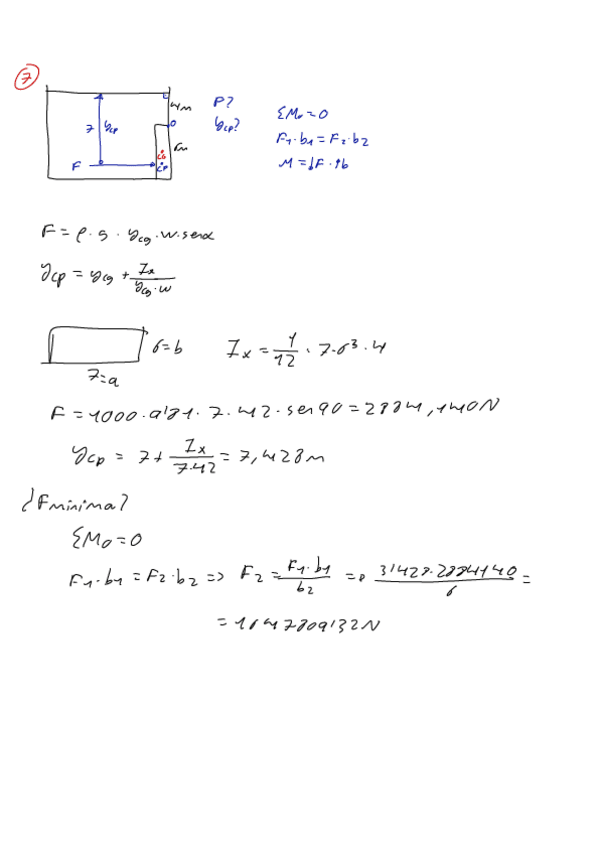 7
4m
P?
ΣM₀=0
7 ycp
o
ycp?
6m
F₁·b₁=F₂·b₂
CG
F
CP
F = ρ·g·ycg·w·senα
ycp = ycg + Ix / ycg·w
6=b
Ix = 1/12 · 7·6³·4
7=a
F = 1000·9'81·7·42·sen90 = 2884,140N
ycp = 7+ Ix / 7·42 = 7,428m
¿Fminima?
ΣM₀=0
F₁·b₁ = F₂·b₂ => F₂ = F₁·b₁ / b₂ => 3'428·2884140 / 6 =
= 1647809'32N